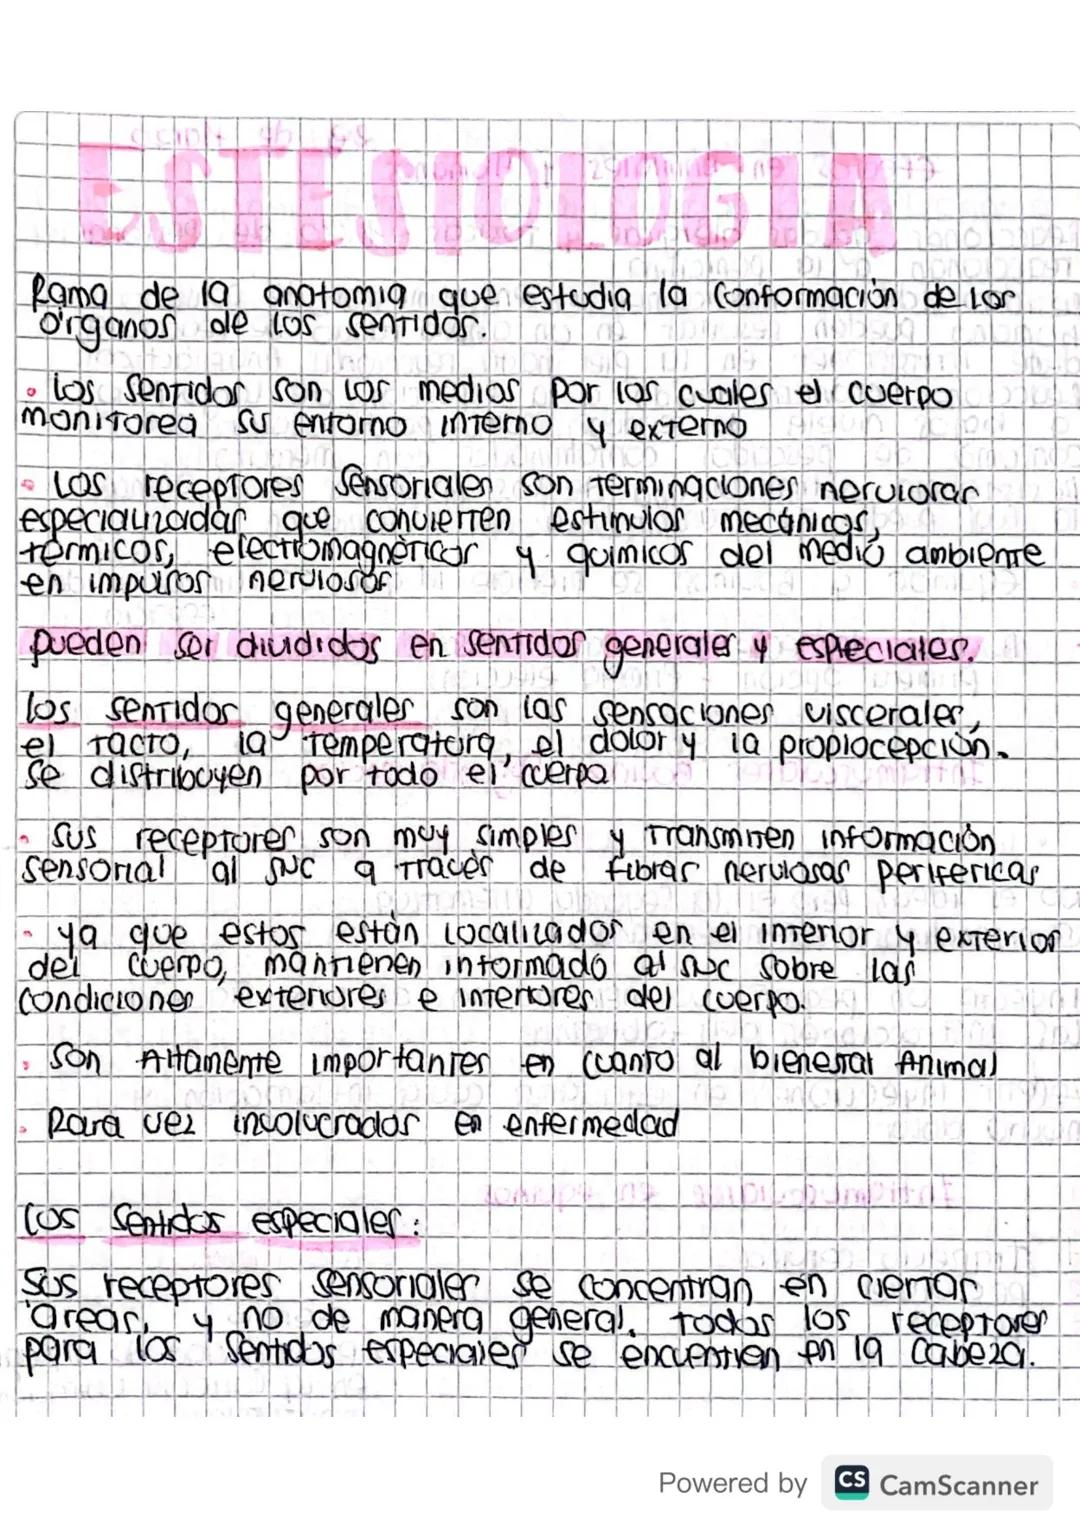 ESTESIOLOGIA
Rama de la anatomia que estudia la conformación de los
órganos de los sentidos.
• Los sentidos son los medios por los cuales el cuerpo
monitorea su entorno interno y externo
• Los receptores sensoriales son terminaciones nerviosas
especializadas que convierten estimulos mecánicos,
térmicos, electromagnéticos y quimicos del medio ambiente
en impulsos nerviosos.
pueden ser divididos en sentidos generales y especiales.
los sentidos generales son las sensaciones viscerales,
el tacto, la temperatura, el dolor y la propiocepción.
Se distribuyen por todo el cuerpo
• Sus receptores son muy simples y transmiten información
sensorial al SNC a través de fibras nerviosas perifericas
• ya que estos están localizados en el interior y exterior
del cuerpo, mantienen informado al SNC sobre las
condiciones exteriores e interiores del cuerpo.
• Son Altamente importantes en cuanto al bienestar Animal
• Rara vez incolucrados en enfermedad
Los Sentidos especiales:
Sus receptores sensoriales se concentran en ciertas
áreas, y no de manera general. todos los receptores
para los Sentidos especiales se encuentren en la cabeza.
Powered by CS CamScanner